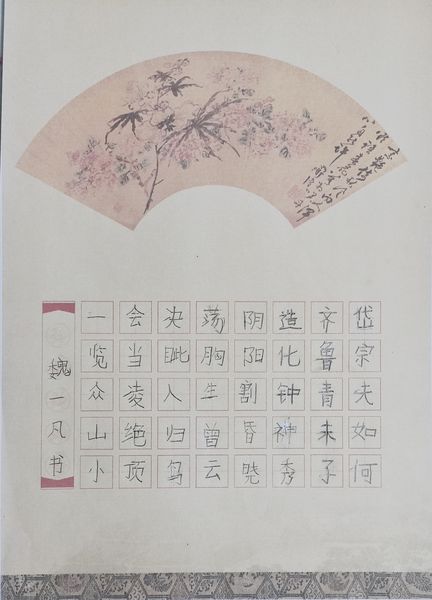 岱宗夫如何
齐鲁青未了
造化钟神秀
阴阳割昏晓
荡胸生曾云
决眦入归鸟
会当凌绝顶
一览众山小
魏一凡书